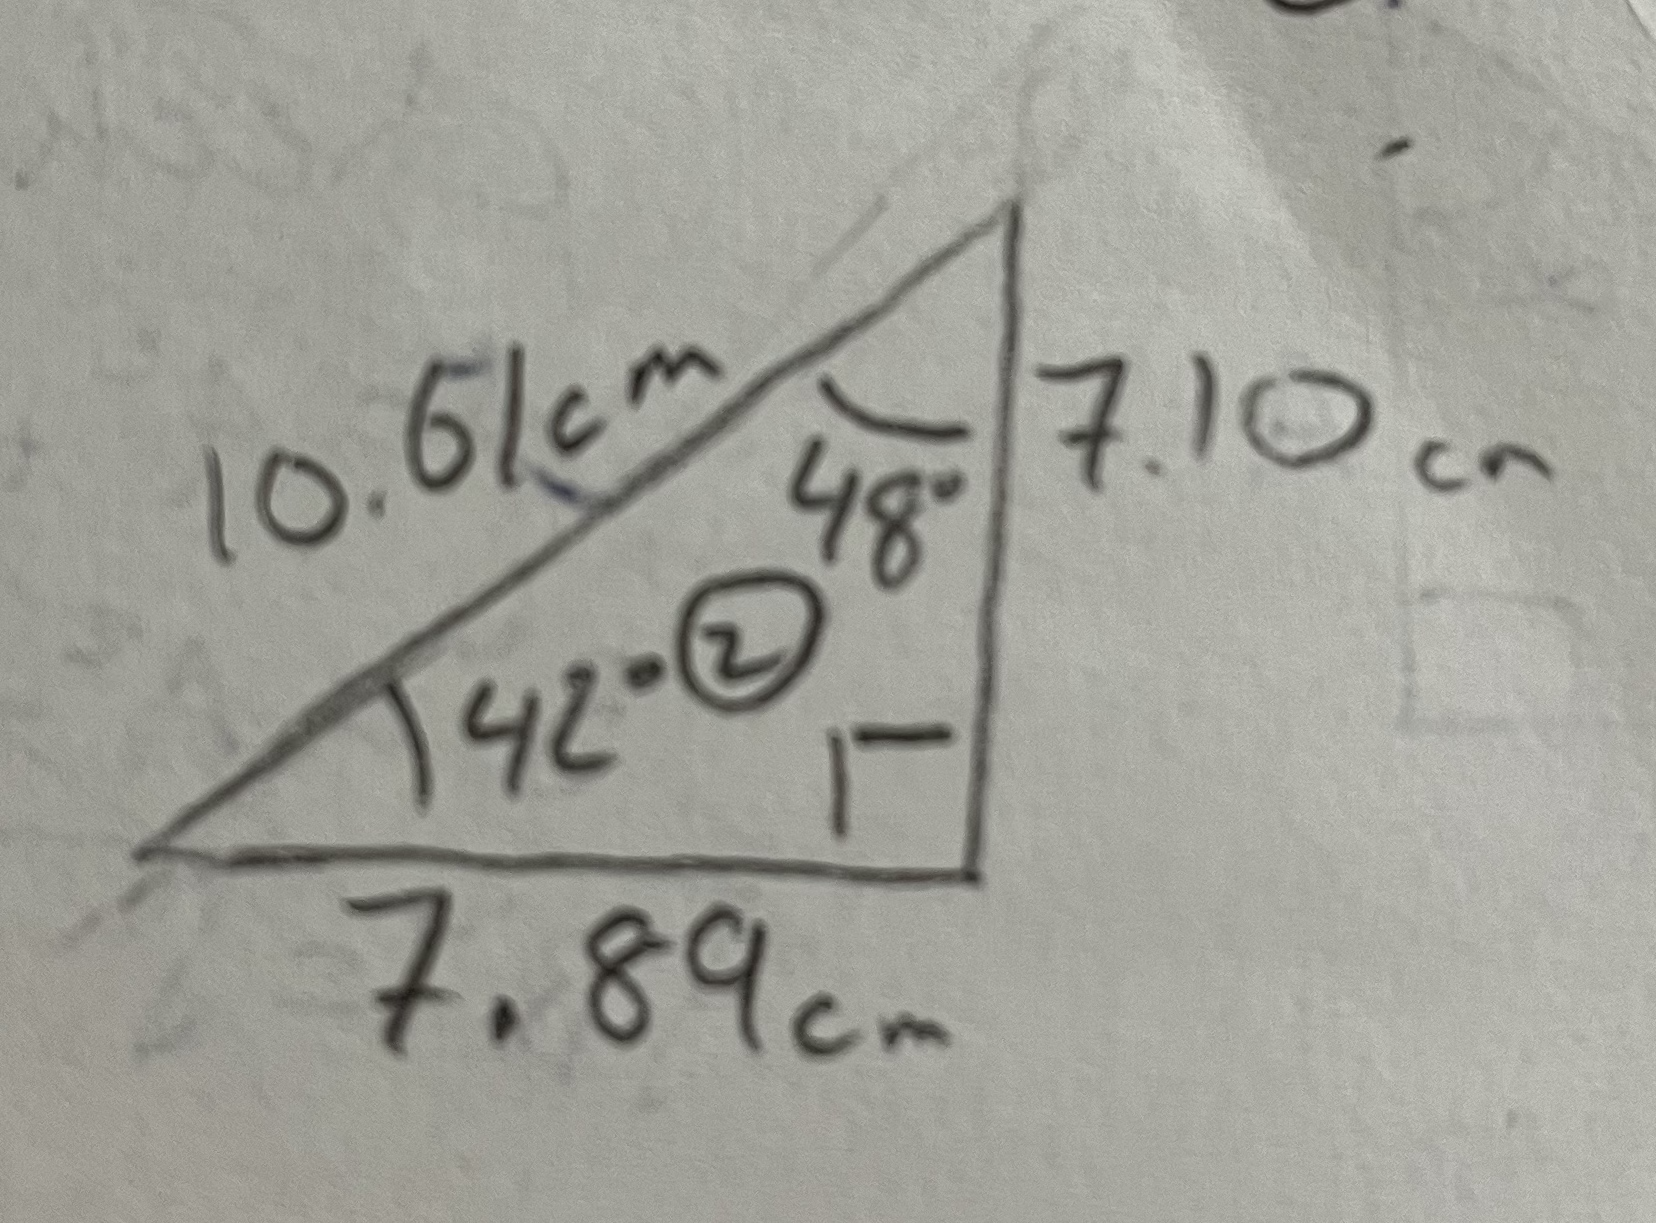 10.61cm
7.10cm
48°
42°
2
7.89cm